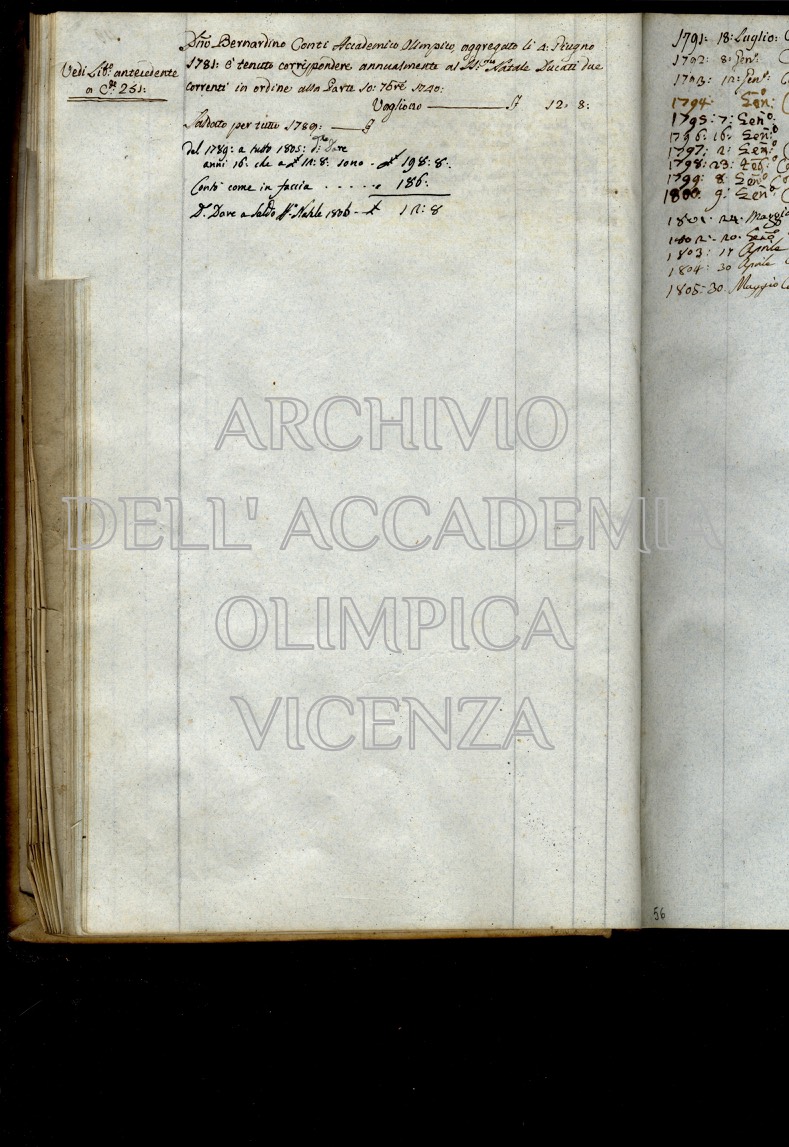 Vedi Lib.º antecedente
a C.te 251:
Dño Bernardino Conti Accademico Olimpico, aggregato li 4: Giugno
1781: è tenuto corrispondere annualmente al SS.mo Natale Ducati due
correnti in ordine alla Parte 10: 7bre 1740:
Vagliono 12: 8:
Saldotto per tutto 1789:
del 1789: a tutto 1805: Dare
anni 16. che a 12: 8: sono 198: 8:
Conti come in faccia 186:
D. Dare a Saldo Nãle 1806 12: 8
1791: 18: Luglio:
1792: 8:
1793: 12:
1794: Geñ:
1795: 7: Geñº.
1796: 16: Geñº
1797: 2: Geñº
1798: 23:
1799: 8: Geñº
1800: 9: Geñº
1801: 24. Maggio
1802: 20. Geñº
1803: 17 Aprile
1804: 30 Aprile
1805: 30. Maggio
56
ARCHIVIO
DELL' ACCADEMIA
OLIMPICA
VICENZA